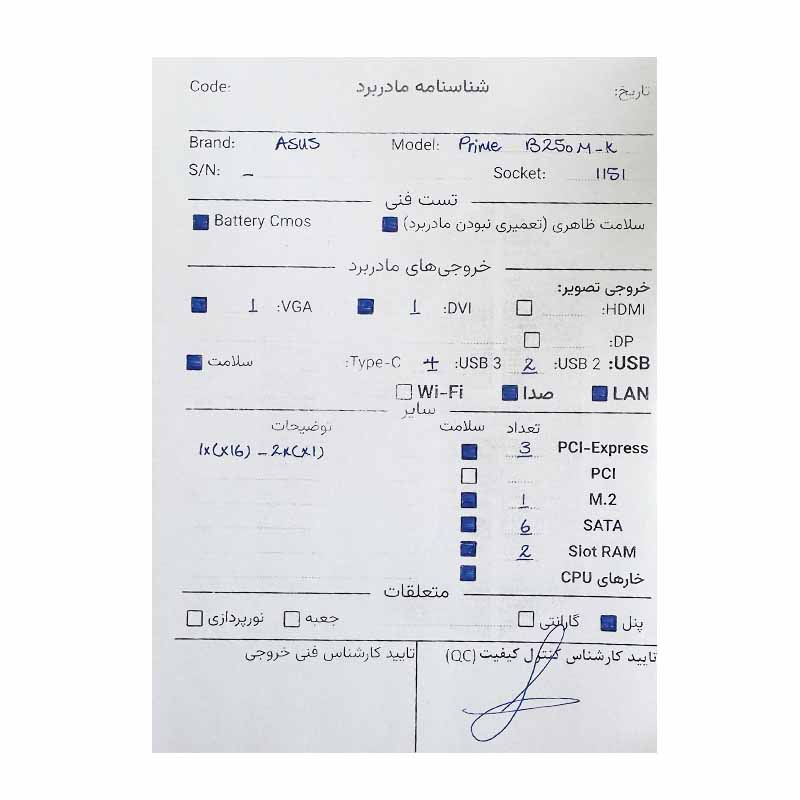 شناسنامه مادربرد
تاریخ:
Code:
Brand: ASUS Model: Prime B250M-K
S/N: - Socket: 1151
تست فنی
سلامت ظاهری (تعمیری نبودن مادربرد) Battery Cmos
خروجی‌های مادربرد
خروجی تصویر:
HDMI: DVI: 1 VGA: 1
DP:
USB: USB 2: 2 USB 3: 4 Type-C: سلامت
LAN صدا Wi-Fi
سایر
تعداد سلامت توضیحات
PCI-Express 3 1x(x16) - 2x(x1)
PCI
M.2 1
SATA 6
Slot RAM 2
خارهای CPU
متعلقات
پنل گارانتی جعبه نورپردازی
تایید کارشناس کنترل کیفیت (QC) تایید کارشناس فنی خروجی